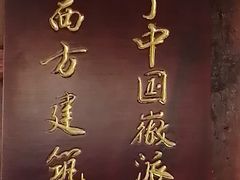 中国徽派
西方建筑